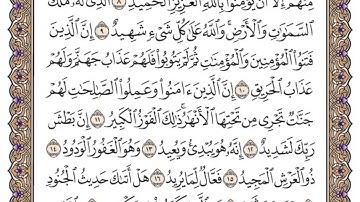 مِنْهُمْ إِلَّآ أَن يُؤْمِنُوا۟ بِٱللَّهِ ٱلْعَزِيزِ ٱلْحَمِيدِ ٨ ٱلَّذِى لَهُۥ مُلْكُ
ٱلسَّمَٰوَٰتِ وَٱلْأَرْضِ ۚ وَٱللَّهُ عَلَىٰ كُلِّ شَىْءٍ شَهِيدٌ ٩ إِنَّ ٱلَّذِينَ
فَتَنُوا۟ ٱلْمُؤْمِنِينَ وَٱلْمُؤْمِنَٰتِ ثُمَّ لَمْ يَتُوبُوا۟ فَلَهُمْ عَذَابُ جَهَنَّمَ وَلَهُمْ
عَذَابُ ٱلْحَرِيقِ ١٠ إِنَّ ٱلَّذِينَ ءَامَنُوا۟ وَعَمِلُوا۟ ٱلصَّٰلِحَٰتِ لَهُمْ
جَنَّٰتٌ تَجْرِى مِن تَحْتِهَا ٱلْأَنْهَٰرُ ۚ ذَٰلِكَ ٱلْفَوْزُ ٱلْكَبِيرُ ١١ إِنَّ بَطْشَ
رَبِّكَ لَشَدِيدٌ ١٢ إِنَّهُۥ هُوَ يُبْدِئُ وَيُعِيدُ ١٣ وَهُوَ ٱلْغَفُورُ ٱلْوَدُودُ ١٤
ذُو ٱلْعَرْشِ ٱلْمَجِيدُ ١٥ فَعَّالٌ لِّمَا يُرِيدُ ١٦ هَلْ أَتَىٰكَ حَدِيثُ ٱلْجُنُودِ